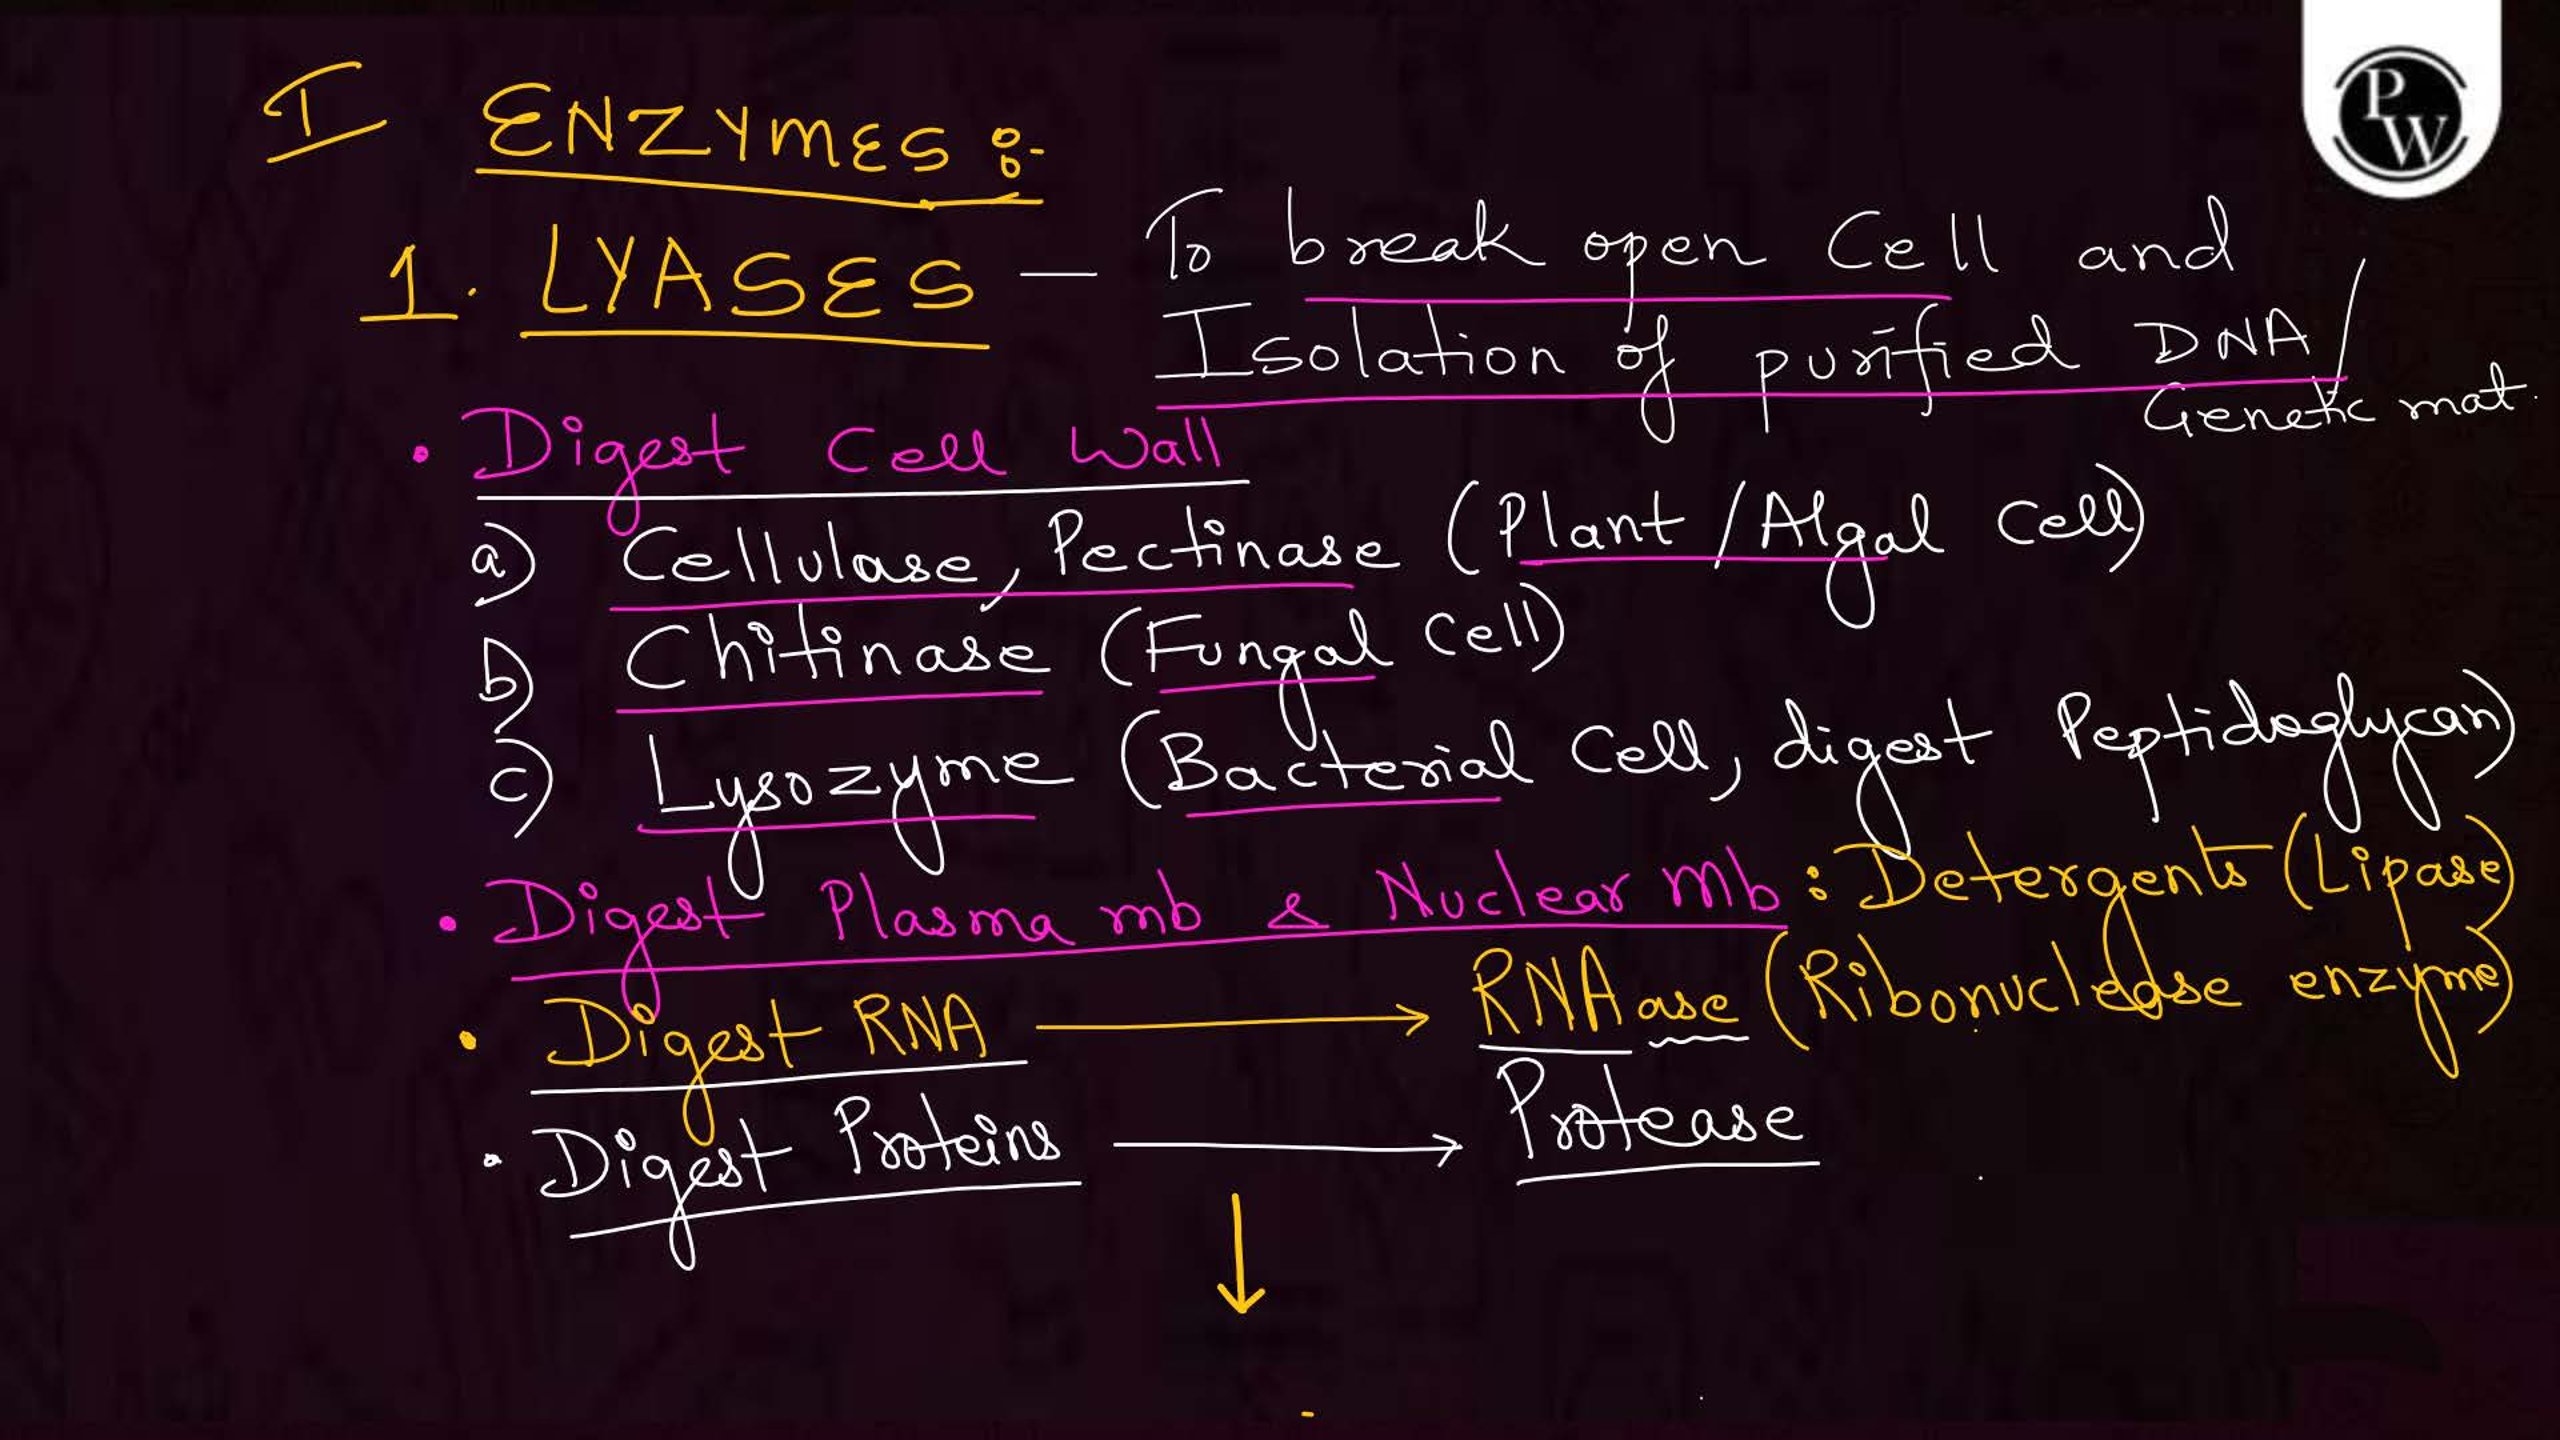 I ENZYMES :-
1. LYASES — To break open Cell and
Isolation of purified DNA/
Genetic mat.
• Digest Cell Wall
a) Cellulase, Pectinase (Plant/Algal Cell)
b) Chitinase (Fungal Cell)
c) Lysozyme (Bacterial Cell, digest Peptidoglycan)
• Digest Plasma mb & Nuclear Mb : Detergents (Lipase)
• Digest RNA → RNAase (Ribonuclease enzyme)
• Digest Proteins → Protease
↓
PW